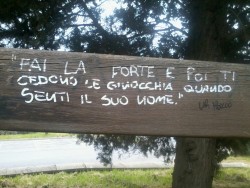 "FAI LA FORTE E POI TI
CEDONO LE GINOCCHIA QUANDO
SENTI IL SUO NOME."